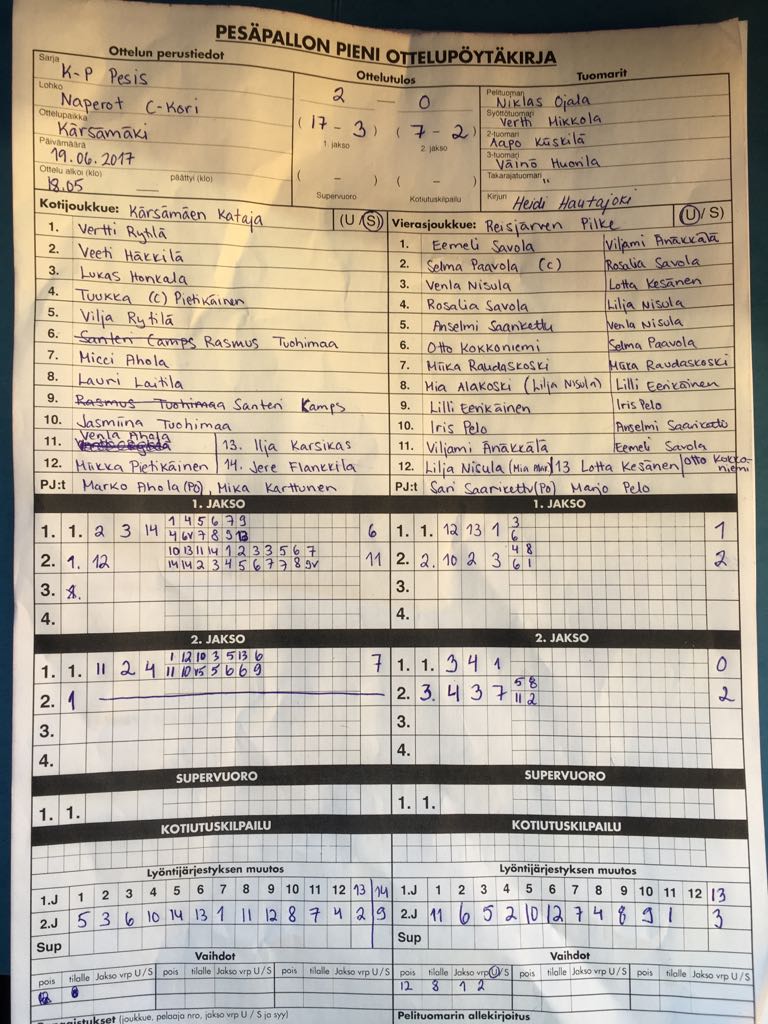 PESÄPALLON PIENI OTTELUPÖYTÄKIRJA
Ottelun perustiedot
Ottelutulos
Tuomarit
Sarja K-P Pesis
Lohko Naperot C-Kori
Ottelupaikka Kärsämäki
Päivämäärä 19.06.2017
Ottelu alkoi (klo) 18.05 päättyi (klo)
2 — 0
(17 - 3) (7 - 2)
1. jakso 2. jakso
( - ) ( - )
Supervuoro Kotiutuskilpailu
Pelituomari Niklas Ojala
Syöttötuomari Vertti Mikkola
2-tuomari Aapo Käskilä
3-tuomari Väinö Huorila
Takarajatuomari "
Kirjuri Heidi Hautajoki
Kotijoukkue: Kärsämäen Kataja (U/S)
1. Vertti Rytilä
2. Veeti Häkkilä
3. Lukas Honkala
4. Tuukka (c) Pietikäinen
5. Vilja Rytilä
6. Santeri Camps Rasmus Tuohimaa
7. Micci Ahola
8. Lauri Laitila
9. Rasmus Tuohimaa Santeri Kamps
10. Jasmiina Tuohimaa
11. Venla Ahola 13. Ilja Karsikas
12. Miikka Pietikäinen 14. Jere Flankkila
PJ:t Marko Ahola (PO), Mika Karttunen
Vierasjoukkue: Reisjärven Pilke (U/S)
1. Eemeli Savola Viljami Änäkkälä
2. Selma Paavola (c) Rosalia Savola
3. Venla Nisula Lotta Kesänen
4. Rosalia Savola Lilja Nisula
5. Anselmi Saarikettu Venla Nisula
6. Otto Kokkoniemi Selma Paavola
7. Miika Raudaskoski Miika Raudaskoski
8. Mia Alakoski (Lilja Nisula) Lilli Eerikäinen
9. Lilli Eerikäinen Iris Pelo
10. Iris Pelo Anselmi Saarikettu
11. Viljami Änäkkälä Eemeli Savola
12. Lilja Nisula 13 Lotta Kesänen Otto Kokkoniemi
PJ:t Sari Saarikettu (PO) Marjo Pelo
1. JAKSO
1. 1. 2 3 14 1 4 5 6 7 9 6
4 6V 7 8 9 13
2. 1. 12 10 13 11 14 1 2 3 3 5 6 7 11
14 14 2 3 4 5 6 7 7 8 9V
3. 8.
4.
1. JAKSO
1. 1. 12 13 1 3 1
6
2. 2. 10 2 3 4 8 2
6 1
3.
4.
2. JAKSO
1. 1. 11 2 4 1 12 10 3 5 13 6 7
11 10 V5 5 6 6 9
2. 1
3.
4.
2. JAKSO
1. 1. 3 4 1 0
2. 3. 4 3 7 5 8 2
11 2
3.
4.
SUPERVUORO
1. 1.
SUPERVUORO
1. 1.
KOTIUTUSKILPAILU
KOTIUTUSKILPAILU
Lyöntijärjestyksen muutos
1.J 1 2 3 4 5 6 7 8 9 10 11 12 13 14
2.J 5 3 6 10 14 13 1 11 12 8 7 4 2 9
Sup
Lyöntijärjestyksen muutos
1.J 1 2 3 4 5 6 7 8 9 10 11 12 13
2.J 11 6 5 2 10 12 7 4 8 9 1 3
Sup
Vaihdot
pois tilalle Jakso vrp U/S pois tilalle Jakso vrp U/S pois tilalle Jakso vrp U/S
8
Vaihdot
pois tilalle Jakso vrp U/S pois tilalle Jakso vrp U/S pois tilalle Jakso vrp U/S
12 8 1 2
(joukkue, pelaaja nro, jakso vrp U/S ja syy)
Pelituomarin allekirjoitus